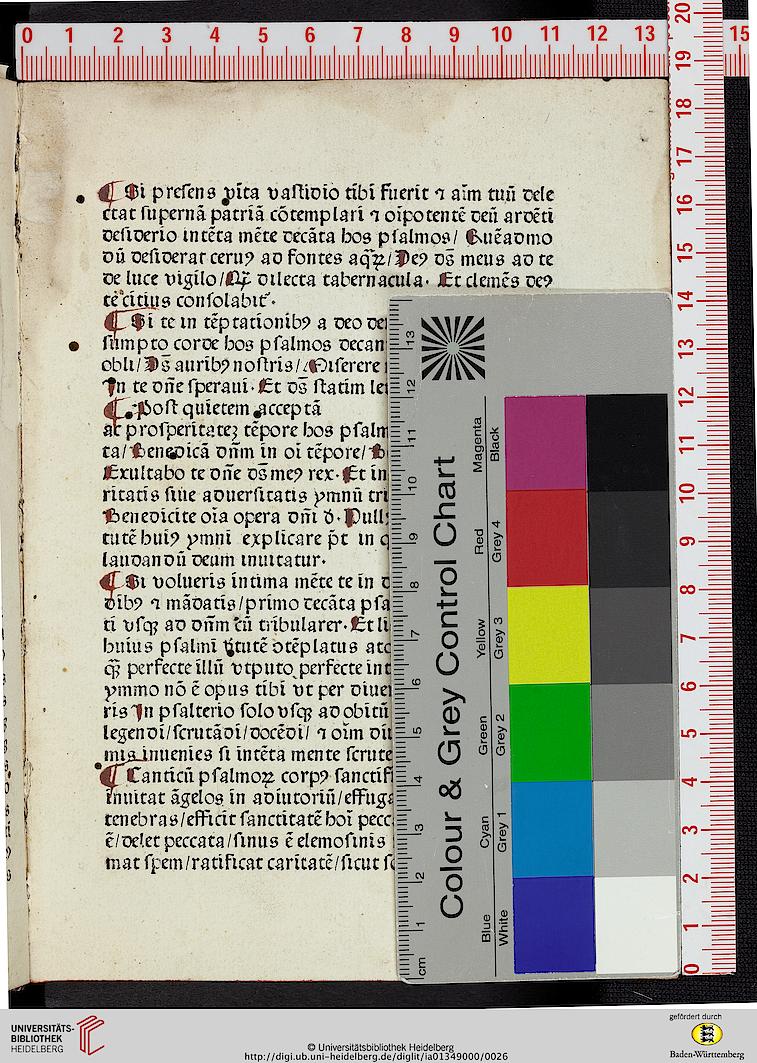 ¶ Si presens vita vastidio tibi fuerit ⁊ aĩm tuũ dele
ctat supernã patriã cõtemplari ⁊ oĩpotentẽ deũ ardẽti
desiderio intẽta mẽte decãta hos psalmos/ Quẽadmo
dũ desiderat ceruꝯ ad fontes aq̃ꝝ/ Deꝯ ds̃ meus ad te
de luce vigilo/ Q̃ dilecta tabernacula. Et clemẽs deꝯ
te citius consolabit᷑.
¶ Si te in tẽptationibꝯ a deo
sumpto corde hos psalmos decan
obli/ Ds̃ auribꝯ nostris/ Miserere
In te dñe speraui. Et ds̃ statim
¶ Post quietem acceptã
ac prosperitateꝫ tẽpore hos psalm
ta/ Benedicã dñm in oĩ tẽpore/
Exultabo te dñe ds̃ meꝯ rex. Et in
ritatis siue aduersitatis ymnũ tri
Benedicite oĩa opera dñi d. Null
tutẽ huiꝯ ymni explicare põt in
laudandũ deum inuitatur.
¶ Si volueris intima mẽte te in
dibꝯ ⁊ mãdatis/ primo decãta psa
ti vsqꝫ ad dñm cũ tribularer. Et li
huius psalmi v̾tutẽ ꝯtẽplatus
q̃ perfecte illũ vt puto perfecte int
ymmo nõ ẽ opus tibi vt per diuer
ris In psalterio solo vsqꝫ ad obitũ
legendi/ scrutãdi/ docẽdi/ ⁊ oĩm
mis inuenies si intẽta mente scrute
¶ Canticũ psalmoꝝ corpꝯ sanctif
inuitat ãgelos in adiutoriũ/ effuga
tenebras/ efficit sanctitatẽ hoĩ pecc
ẽ/ delet peccata/ sinus ẽ elemosinis
mat spem/ ratificat caritatẽ/ sicut
0 1 2 3 4 5 6 7 8 9 10 11 12 13 15
20
19
18
17
16
15
14
13
12
11
10
9
8
7
6
5
4
3
2
1
0
Colour & Grey Control Chart
Magenta
Black
Red
Grey 4
Yellow
Grey 3
Green
Grey 2
Cyan
Grey 1
Blue
White
13
12
11
10
9
8
7
6
5
4
3
2
1
cm
UNIVERSITÄTS-
BIBLIOTHEK
HEIDELBERG
© Universitätsbibliothek Heidelberg
http://digi.ub.uni-heidelberg.de/diglit/ia01349000/0026
gefördert durch
Baden-Württemberg